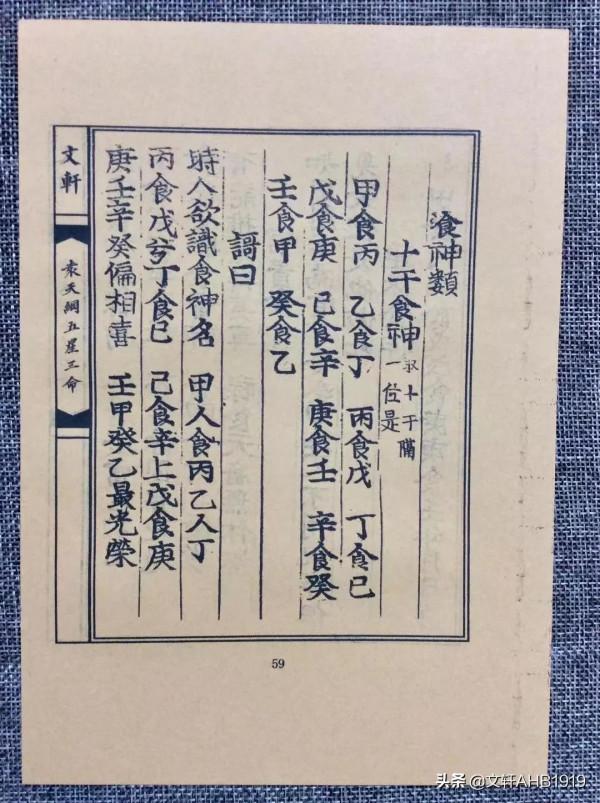 飡神類
十干食神 取十干隔
一位是
甲食丙 乙食丁 丙食戊 丁食己
戊食庚 己食辛 庚食壬 辛食癸
壬食甲 癸食乙
謌曰
時人欲識食神名 甲人食丙乙人丁
丙食戊兮丁食己 己食辛上戊食庚
庚壬辛癸偏相喜 壬甲癸乙最光榮
文軒
袁天綱五星三命
59
头条 @文轩AHB1919